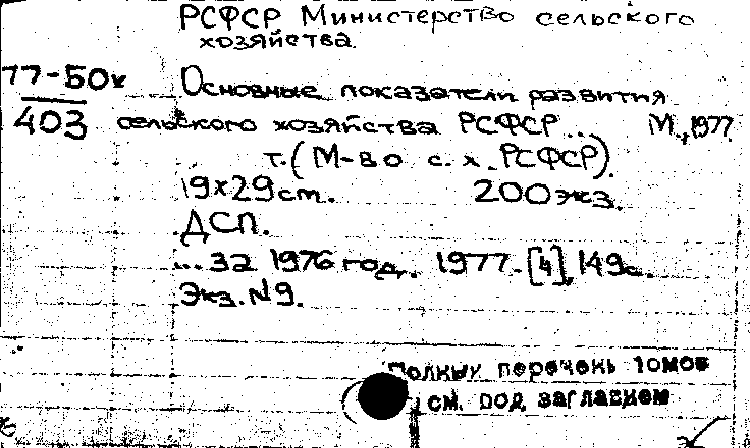 РСФСР Министерство сельского
хозяйства.
77-50к
403
Основные показатели развития
сельского хозяйства РСФСР... М., 1977.
т. (М-во с. х. РСФСР).
19х29см. 200 экз.
ДСП.
... за 1976 год. 1977. [4], 149с.
Экз. N9.
Полный перечень томов
см. под заглавием